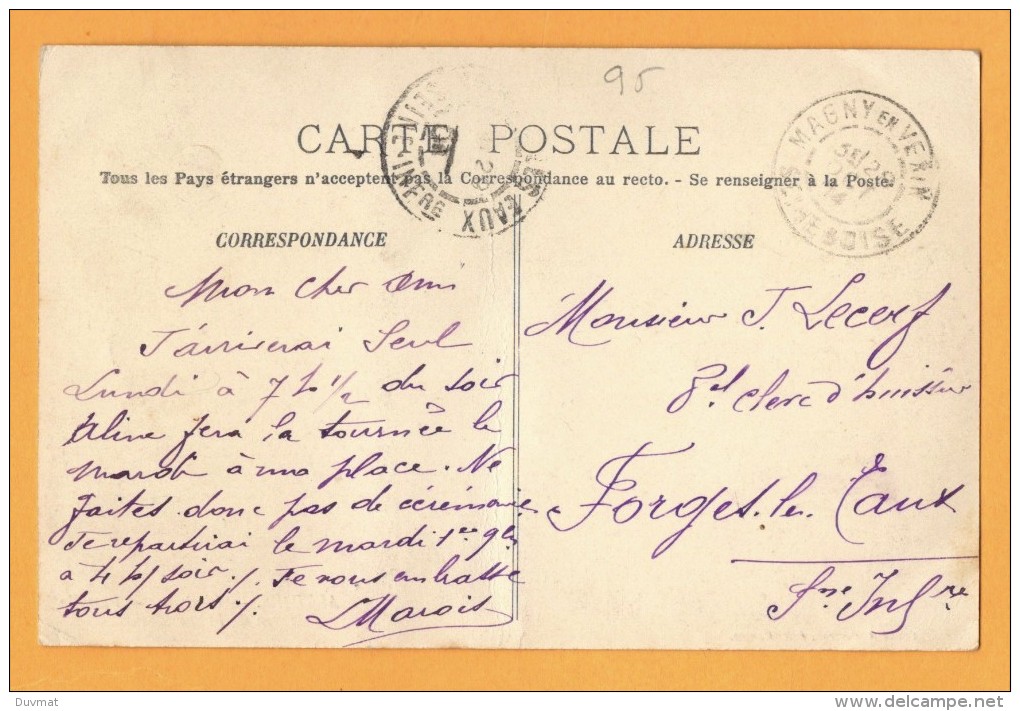 95
CARTE POSTALE
Tous les Pays étrangers n'acceptent pas la Correspondance au recto. - Se renseigner à la Poste.
MAGNY EN VEXIN
SEINE & OISE
EAUX
INFRE
CORRESPONDANCE
Mon cher Ami
J'arriverai seul
Lundi à 7 h 1/2 du soir
Aline fera la tournée le
mardi à ma place. Ne
faites donc pas de cérémonie.
Je repartirai le mardi 1er
à 4 h/ soir ./. Je vous embrasse
tous trois ./. LMarois
ADRESSE
Monsieur J. Lecerf
Pal clerc d'huissier
Forges-les-Eaux
Sne Infre
Duvmat
delcampe.net